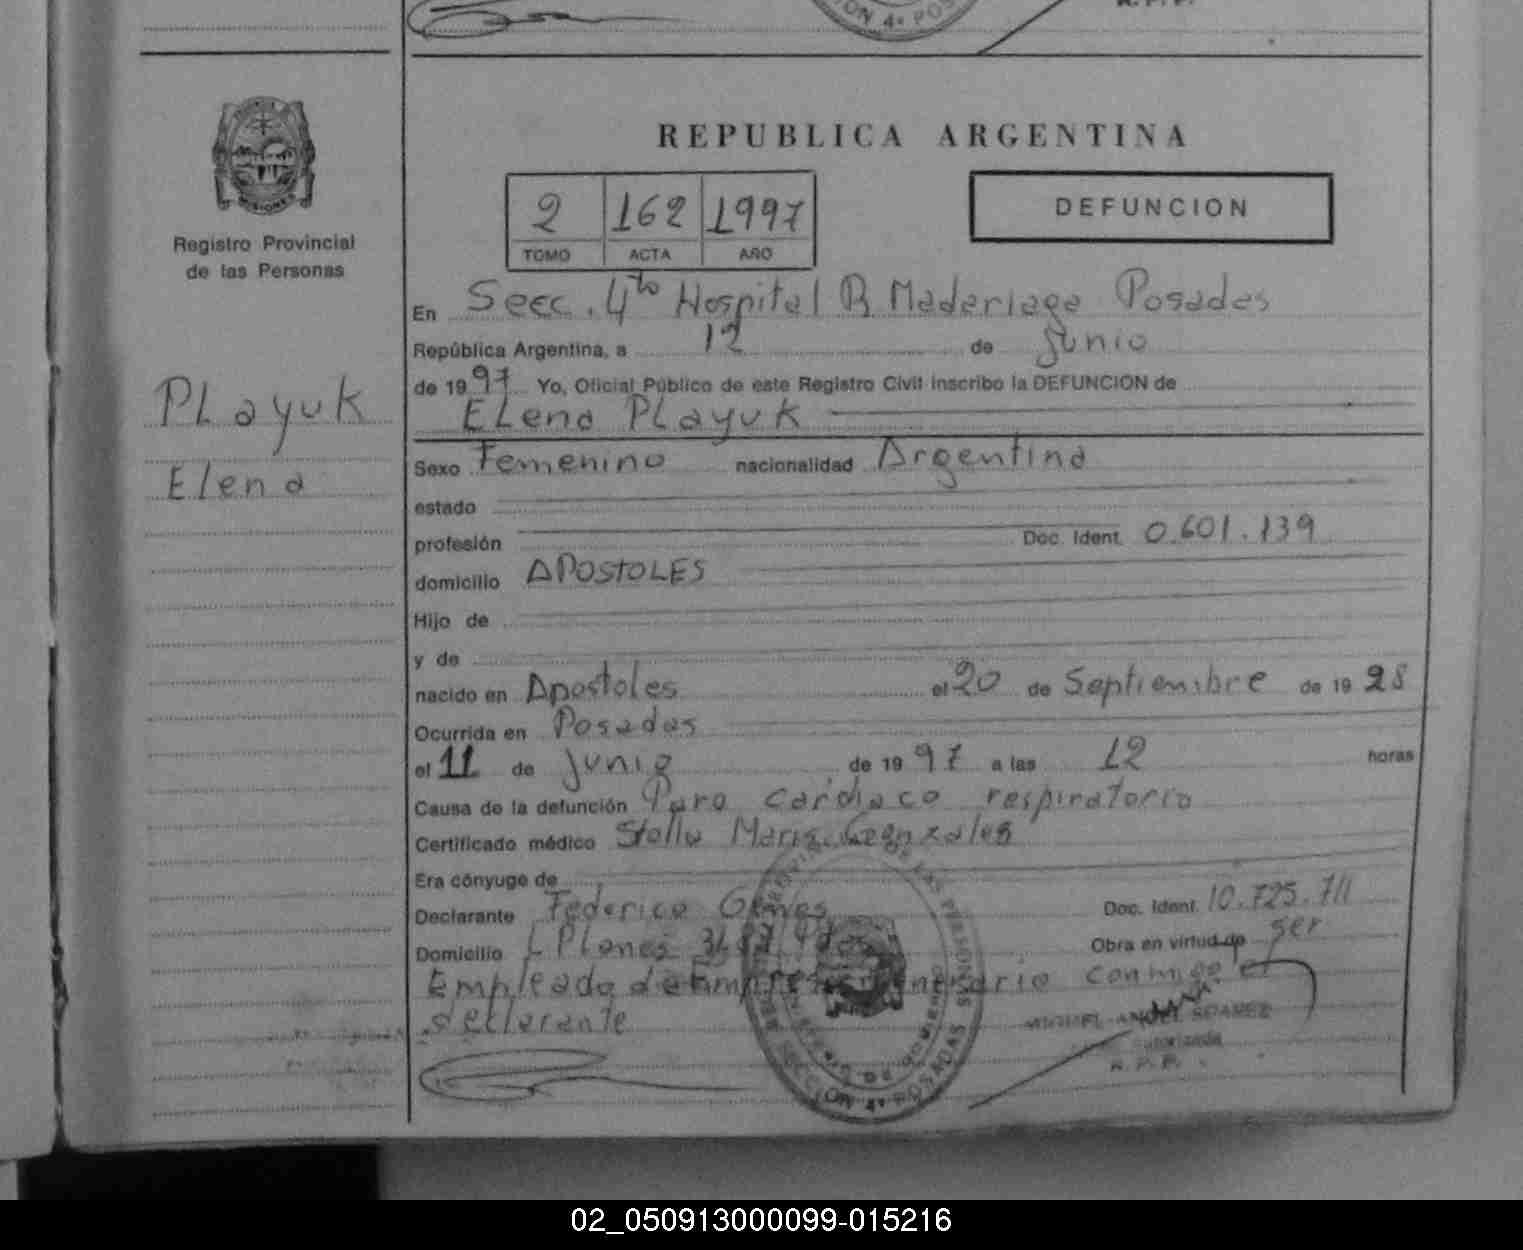 CION 4ª POS
R. P. P.
MISIONES
Registro Provincial
de las Personas
PLayuk
Elena
REPUBLICA ARGENTINA
2 162 1997
TOMO ACTA AÑO
DEFUNCION
En Secc. 4to Hospital R. Madariaga Posadas
República Argentina, a 12 de junio
de 1997 Yo, Oficial Público de este Registro Civil inscribo la DEFUNCION de
ELena PLayuk
Sexo Femenino nacionalidad Argentina
estado
profesión Doc. Ident. 0.601.139
domicilio APOSTOLES
Hijo de
y de
nacido en Apostoles el 20 de Septiembre de 1928
Ocurrida en Posadas
el 11 de junio de 1997 a las 12 horas
Causa de la defunción Paro cardiaco respiratorio
Certificado médico Stella Maris Gonzales
Era cónyuge de
Declarante Federico Doc. Ident. 10.725.711
Domicilio L Planes Obra en virtud de ser
Empleado de Empresa conmigo el
declarante
MIGUEL ANGEL SOAREZ
Autorizada
R. P. P.
DE LAS PERSONAS
SECCION 4ª POSADAS
02_050913000099-015216